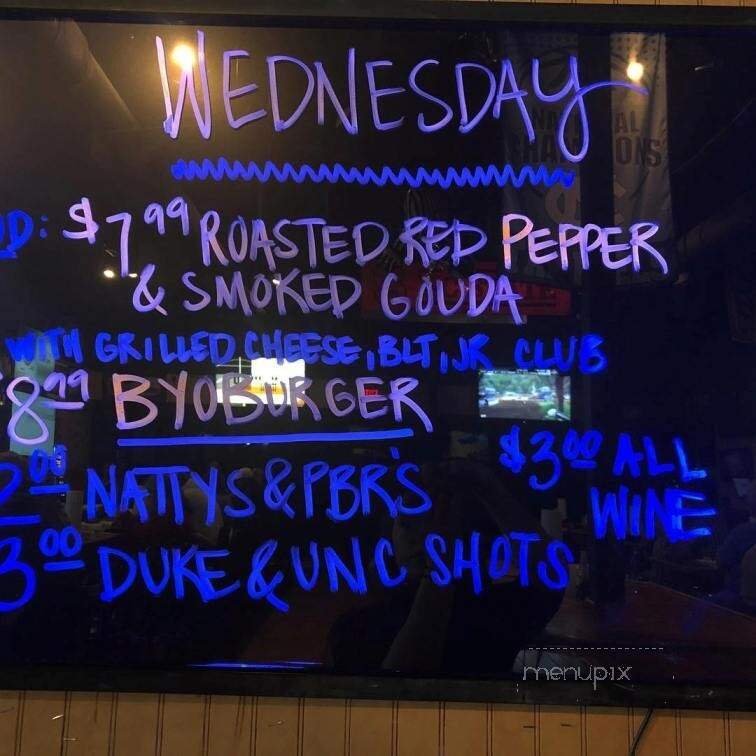 WEDNESDAY
D: $7.99 ROASTED RED PEPPER
& SMOKED GOUDA
WITH GRILLED CHEESE, BLT, JR CLUB
8.99 BYOBURGER
2.00 NATTYS & PBR'S
$3.00 ALL
WINE
3.00 DUKE & UNC SHOTS
menupix